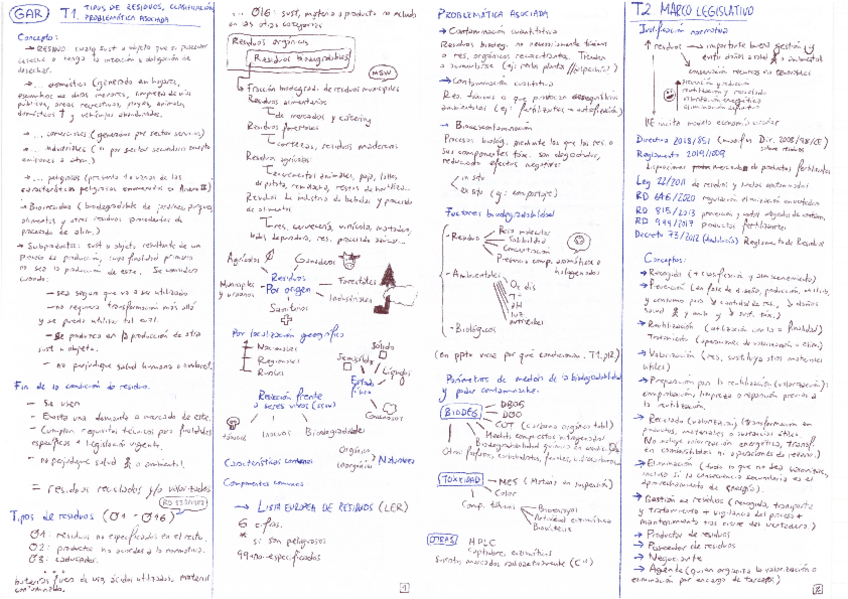 GAR T1. TIPOS DE RESIDUOS, CLASIFICACIÓN
PROBLEMÁTICA ASOCIADA
Concepto:
→ RESIDUO: cualq. sust. u objeto que su poseedor
deseche o tenga la intención u obligación de
desechar.
→ ... domésticos (generados en hogares,
públicos, áreas recreativas, playas, animales
domésticos † y vehículos abandonados.
→ ... comerciales (generados por sector servicios)
→ ... industriales (" por sector secundario excepto
emisiones a atm.)
→ ... peligrosos (presenta 1 o varias de las
características peligrosas enumeradas en Anexo III)
→ Biorresiduo (biodegradable de jardines, parques,
alimentos y otros residuos procedentes de
procesado de alim.)
→ Subproducto: sust. u objeto resultante de un
proceso de producción, cuya finalidad primaria
no sea la producción de este. Se considera
cuando:
- sea seguro que va a ser utilizado
- no requiera transformación más allá
y se pueda utilizar tal cual.
- se produce en la producción de otra
sust. u objeto.
- no perjudique salud humana o ambiental.
Fin de la condición de residuo.
- Se usen
- Exista una demanda o mercado de este.
- Cumplan requisitos técnicos para finalidades
específicas + legislación vigente.
- no perjudique salud o ambiental.
= residuos reciclados y/o valorizados
Tipos de residuos (Q1 - Q16)
Q1: residuos no especificados en el resto.
Q2: productos no acordes a la normativa.
Q3: caducados.
... Q16: sust., materia o producto no incluido
en las otras categorías
Residuos orgánicos
Residuos biodegradables
MSW
→ Fracción biodegrad. de residuos municipales
Residuos alimentarios
de mercados y catering
Residuos forestales
cortezas, residuos madereros
Residuos agrícolas
Residuos de industria de bebidas y procesado
de alimentos
Agrícolas
Ganaderos
Residuos
Por origen
Municipales
y urbanos
Forestales
Industriales
Sanitarios
Por localización geográfica
Nacionales
Regionales
Rurales
Sólido
Semisólido
Líquidos
Estado
físico
Gaseosos
Reacción frente
a seres vivos (SSVV)
tóxicos
Inocuos
Biodegradable
Orgánica
Inorgánica
Naturaleza
Características comunes
Componentes comunes
→ LISTA EUROPEA DE RESIDUOS (LER)
6 cifras.
* si son peligrosos
99 = no especificados
1
PROBLEMÁTICA ASOCIADA
→ Contaminación cuantitativa
Residuos biodeg. no necesariamente tóxicos
→ Contaminación cualitativa
Res. tóxicos o que provocan desequilibrio
ambientales (ej: fertilizantes → eutrofización)
→ Biodescontaminación
Procesos biológ. mediante los que los res. o
sus componentes tóx. son degradados,
reduciendo efectos negativos:
in situ
ex situ (ej: compostaje)
Factores biodegradabilidad
- Residuo
Peso molecular
Solubilidad
Concentración
Presencia comp. aromáticos o
halogenados
- Ambientales
O₂ dis
T²
pH
luz
nutrientes
- Biológicos
(en pptx viene por qué condicionan. T1. p12)
Parámetros de medida de la biodegradabilidad
y poder contaminante.
BIODEG
DBO5
DQO
COT (carbono orgánico total)
TOXICIDAD
MES (Materias en suspensión)
Color
Comp. tóxicos
Bioensayos
Actividad enzimática
OTRAS
HPLC
Captadores enzimáticos
Sustratos marcados radioactivamente (C¹⁴)
T2 MARCO LEGISLATIVO
Justificación normativa
↑ residuos → importante buena gestión y
evitar daños a salud y ambiental
conservación recursos no renovables
prevención y reducción
reutilización y reciclado
valorización energética
eliminación
UE invita modelo economía circular
Directiva 2018/851 (modifica Dir. 2008/98/CE)
sobre residuos
Reglamento 2019/1009
Disposiciones mercado de productos fertilizantes
Ley 22/2011 de residuos y suelos contaminados
RD 646/2020 regulación eliminación en vertedero
RD 815/2013
RD 999/2017 productos fertilizantes
Decreto 73/2012 (Andalucía) Reglamento de Residuos
Conceptos:
→ Recogida (+ clasificación y almacenamiento)
→ Prevención (en fase de diseño, producción,
y consumo para ↓ cantidad de res., ↓ daños
→ Reutilización (utilización con la = finalidad)
Tratamiento (operaciones de valorización + elim.)
→ Valorización (res. sustituye otros materiales
útiles)
→ Preparación para la reutilización (valorización):
comprobación, limpieza o reparación previas a
la reutilización.
→ Reciclado (valorización) (transformación en
productos, materiales o sustancias útiles.
No incluye valorización energética, transf.
en combustibles ni operaciones de relleno.)
→ Eliminación (todo lo que no sea valorización,
incluso si la consecuencia secundaria es el
aprovechamiento de energía).
→ Gestión de residuos (recogida, transporte
y tratamiento + vigilancia del proceso +
mantenimiento tras cierre del vertedero.)
→ Productor de residuos
→ Poseedor de residuos
→ Negociante
→ Agente (quien organiza la valorización o
eliminación por encargo de terceros)
2